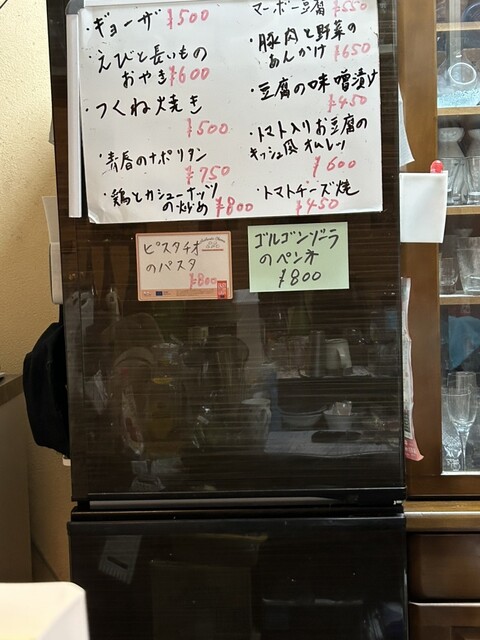 ・ギョーザ ¥500
・えびと長いもの
おやき ¥600
・つくね焼き
¥500
・青春のナポリタン
¥750
・鶏とカシューナッツ
の炒め ¥800
マーボー豆腐 ¥550
・豚肉と野菜の
あんかけ ¥650
・豆腐の味噌漬け
¥450
・トマト入りお豆腐の
キッシュ風オムレツ
¥600
・トマトチーズ焼
¥450
ピスタチオ
のパスタ
¥800
ゴルゴンゾーラ
のペンネ
¥800